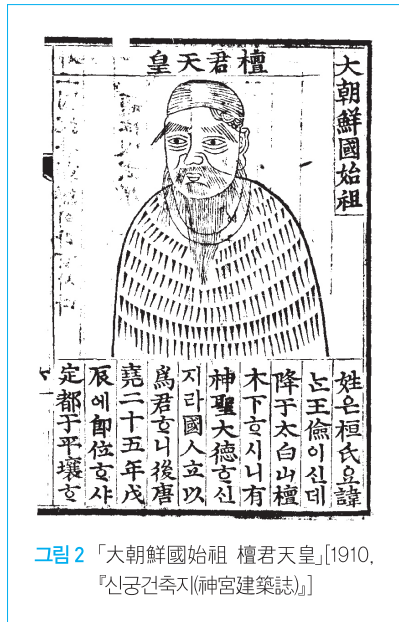 大朝鮮國始祖
檀君天皇
姓은桓氏요諱
는王儉이신데
降于太白山檀
木下ᄒᆞ시니有
神聖大德ᄒᆞ신
지라國人立以
爲君ᄒᆞ니後唐
堯二十五年戊
辰에即位ᄒᆞ샤
定都于平壤ᄒᆞ
그림 2 「大朝鮮國始祖 檀君天皇」[1910,
『신궁건축지(神宮建築誌)』]